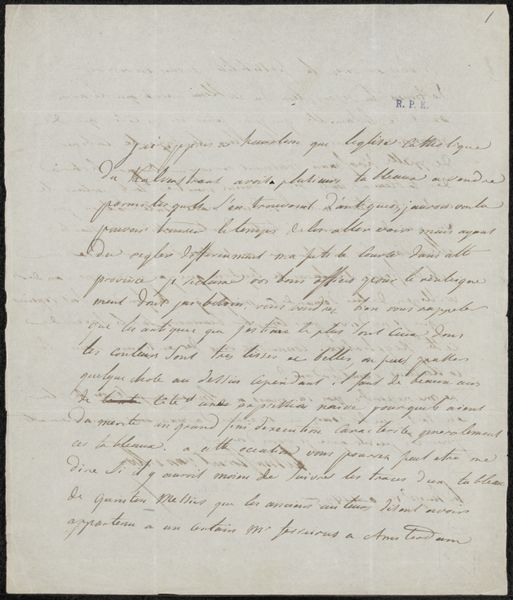 1
R. P. K.
j'ai appris a haarlem que l'eglise catholique
du avoit plusieurs tableaux a vendre
parmi lesquels s'en trouvoient d'antiques, j'aurois voulu
pouvoir trouver le temps de les aller voir mais ayant
du regler ma petite course dans
province je reclame vos bons offices pour le
ment dont vous rappele
que les antiques que j'estime le plus sont ceux dont
les couleurs sont tres lisses et belles on peut passer
quelque chose au dessin cependant il faut de beaux airs
de tete une expression naive pourqu'ils aient
du merite un grand fini d'execution caracterise generalement
ces tableaux. a cette occasion vous pourrez peut etre me
dire si il y auroit moien de suivre les traces d'un tableau
de quinten Messius que les anciens auteurs disent avoir
appartenu a un certain Mr a Amsterdam